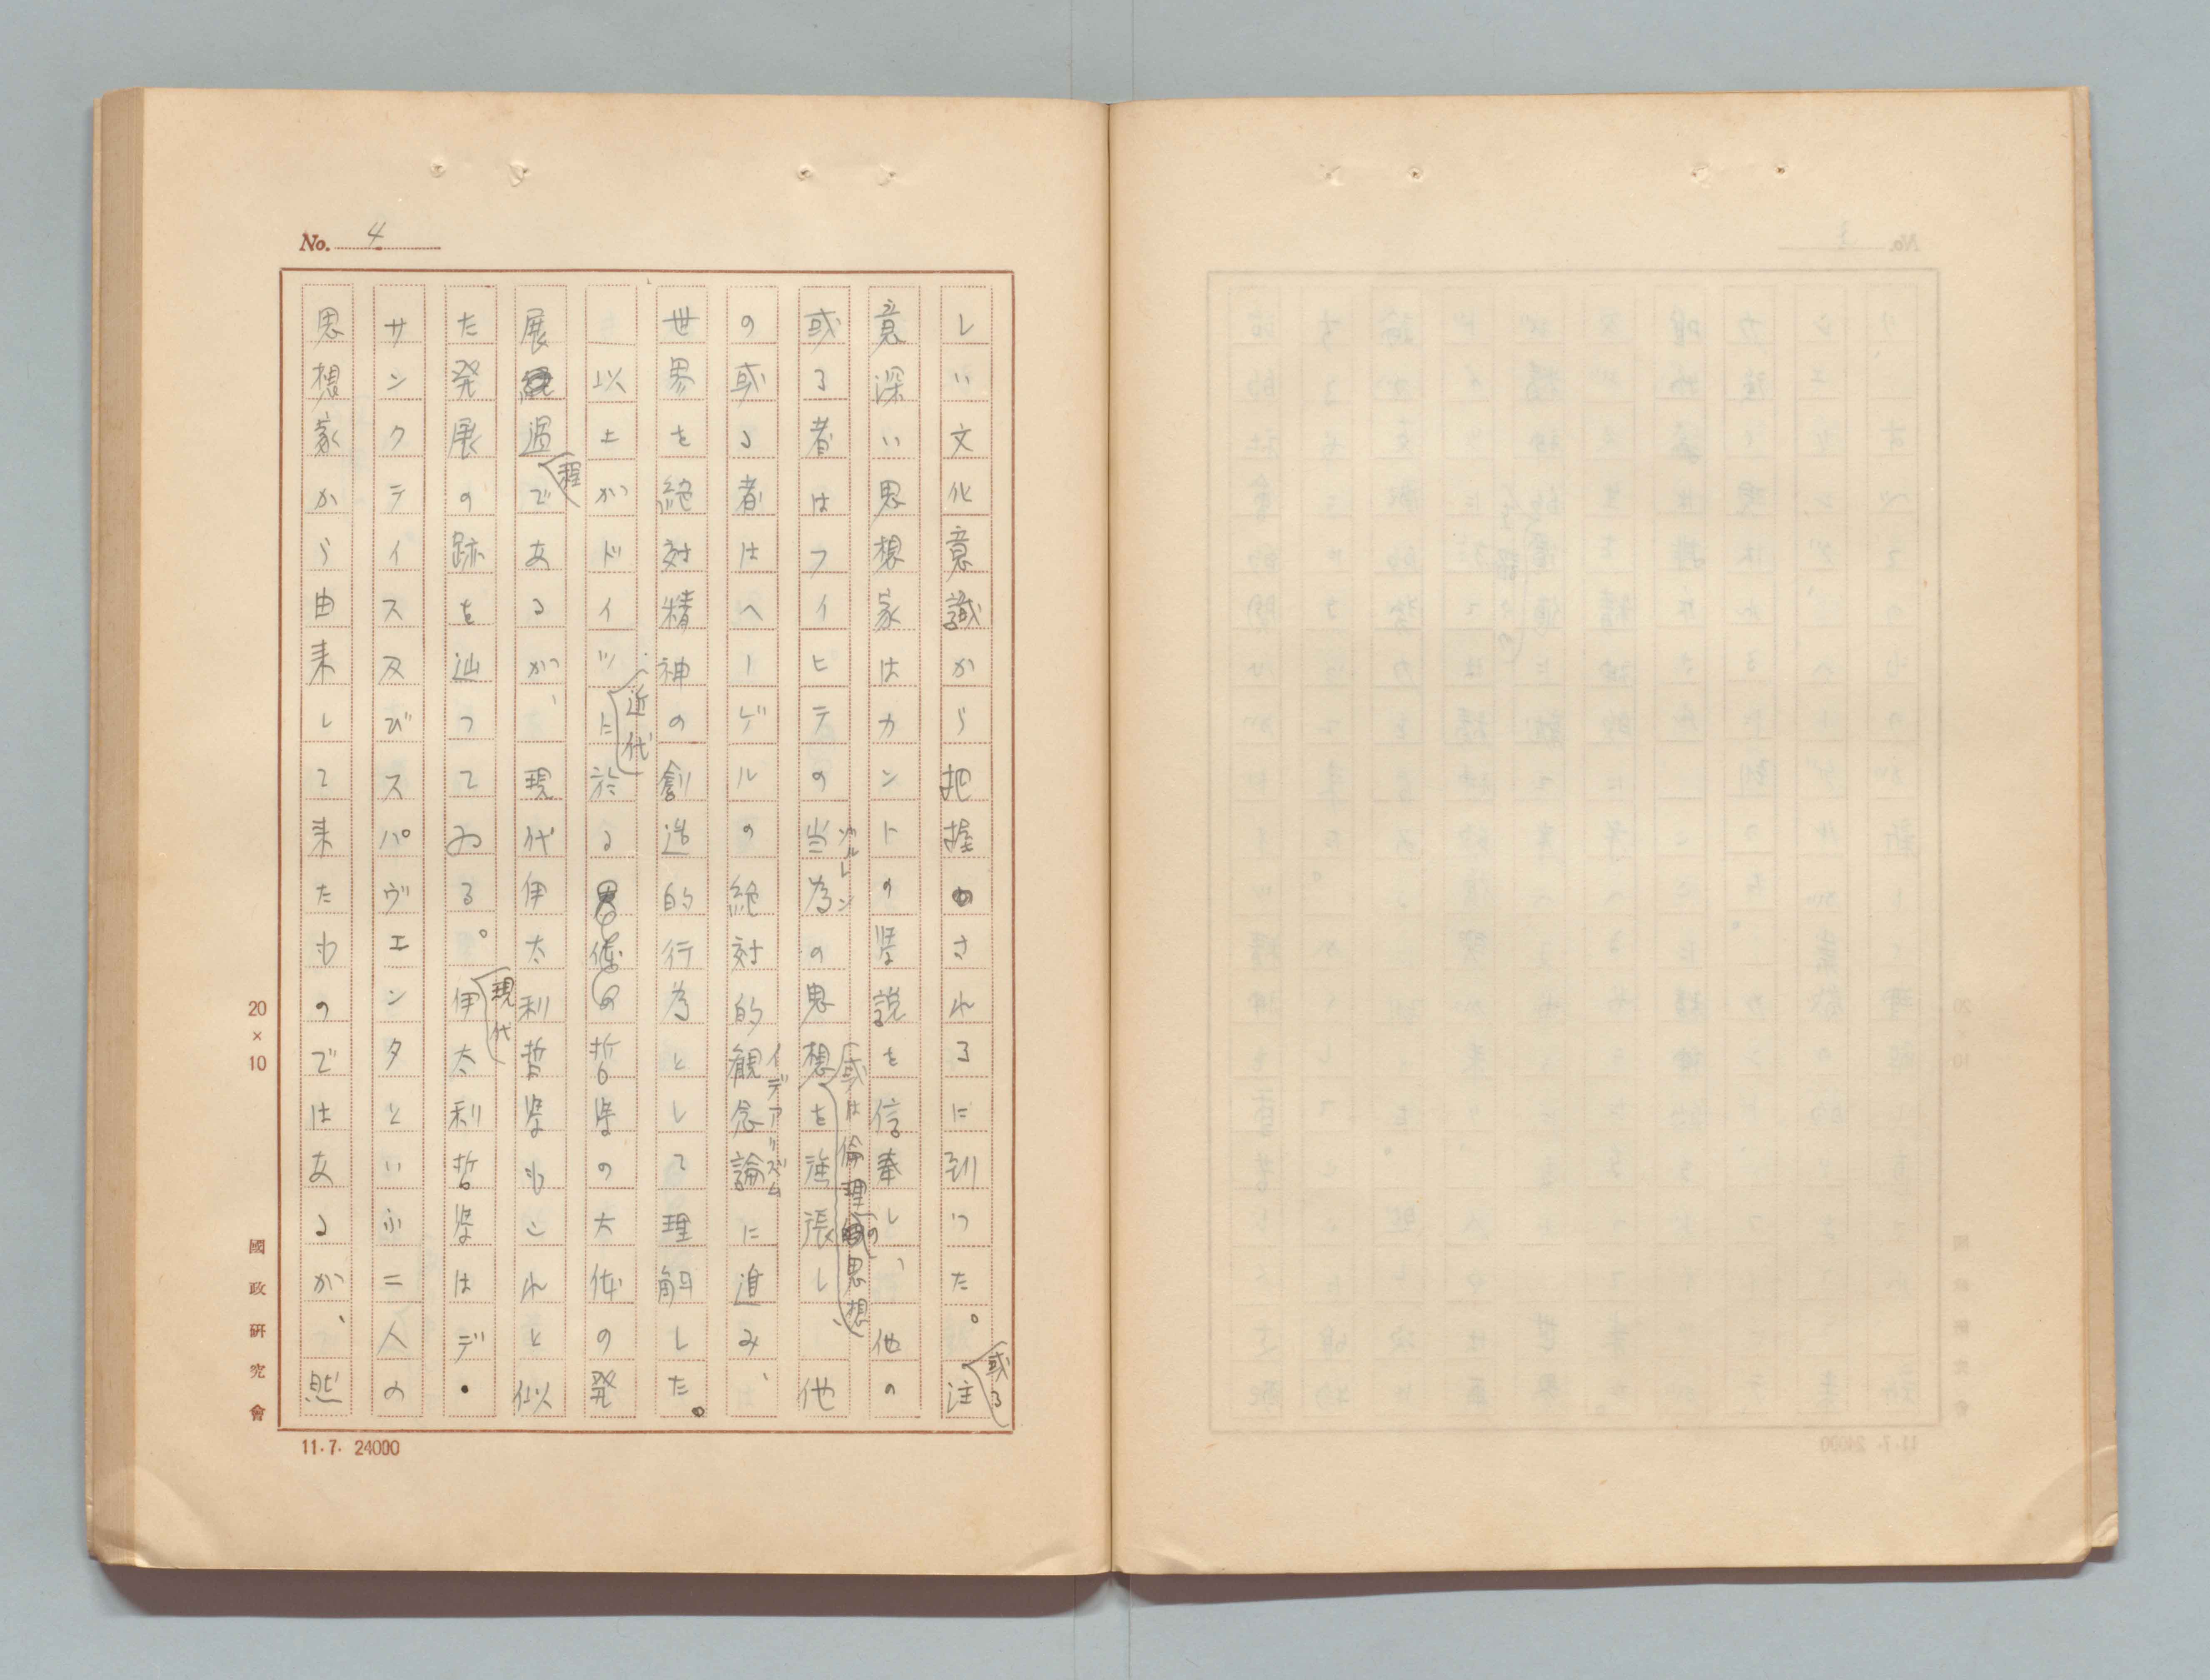 No. 4
しい文化意識から把握されるに到つた。或る注
意深い思想家はカントの学説を信奉し、他の
或る者はフイヒテの当為の思想を強張し他
ゾルレン
或は倫理の思想
の或る者はヘーゲルの絶対的観念論に進み、
イデアリズム
世界を絶対精神の創造的行為として理解した。
以上がドイツに於る哲学の大体の発
近代
展過程であるが、現代伊太利哲学もこれと似
た発展の跡を辿つてゐる。現代伊太利哲学はデ・
サンクテイス及びスパヴエンタといふ二人の
思想家から由来して来たものではあるが、然
20×10
國政研究會
11.7. 24000